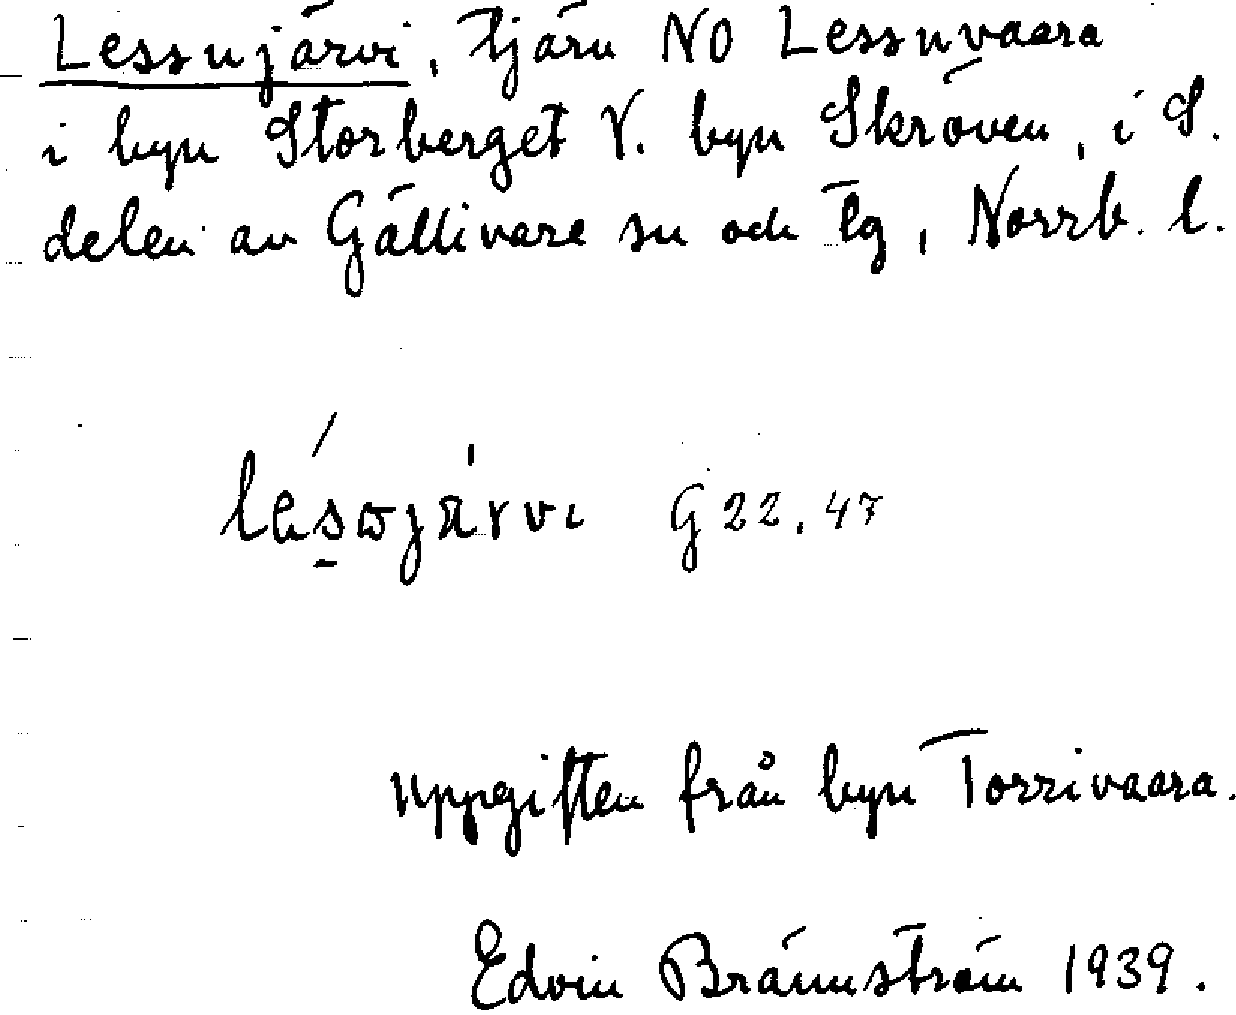 Lessujärvi, tjärn NO Lessuvaara
i byn Storberget V. byn Skröven, i S.
delen av Gällivare sn och tg, Norrb. l.
G 22.47
uppgiften från byn Torrivaara.
Edvin Brännström 1939.